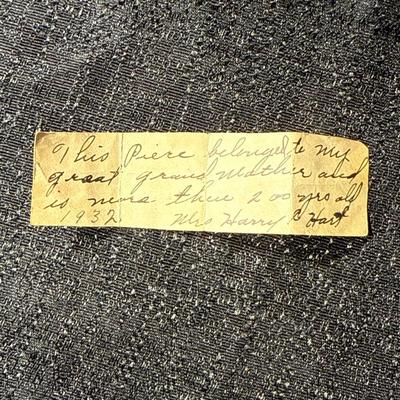 This Piece belonged to my
great grand Mother and
is more then 200 yrs old
1932 Mrs Harry C Hart